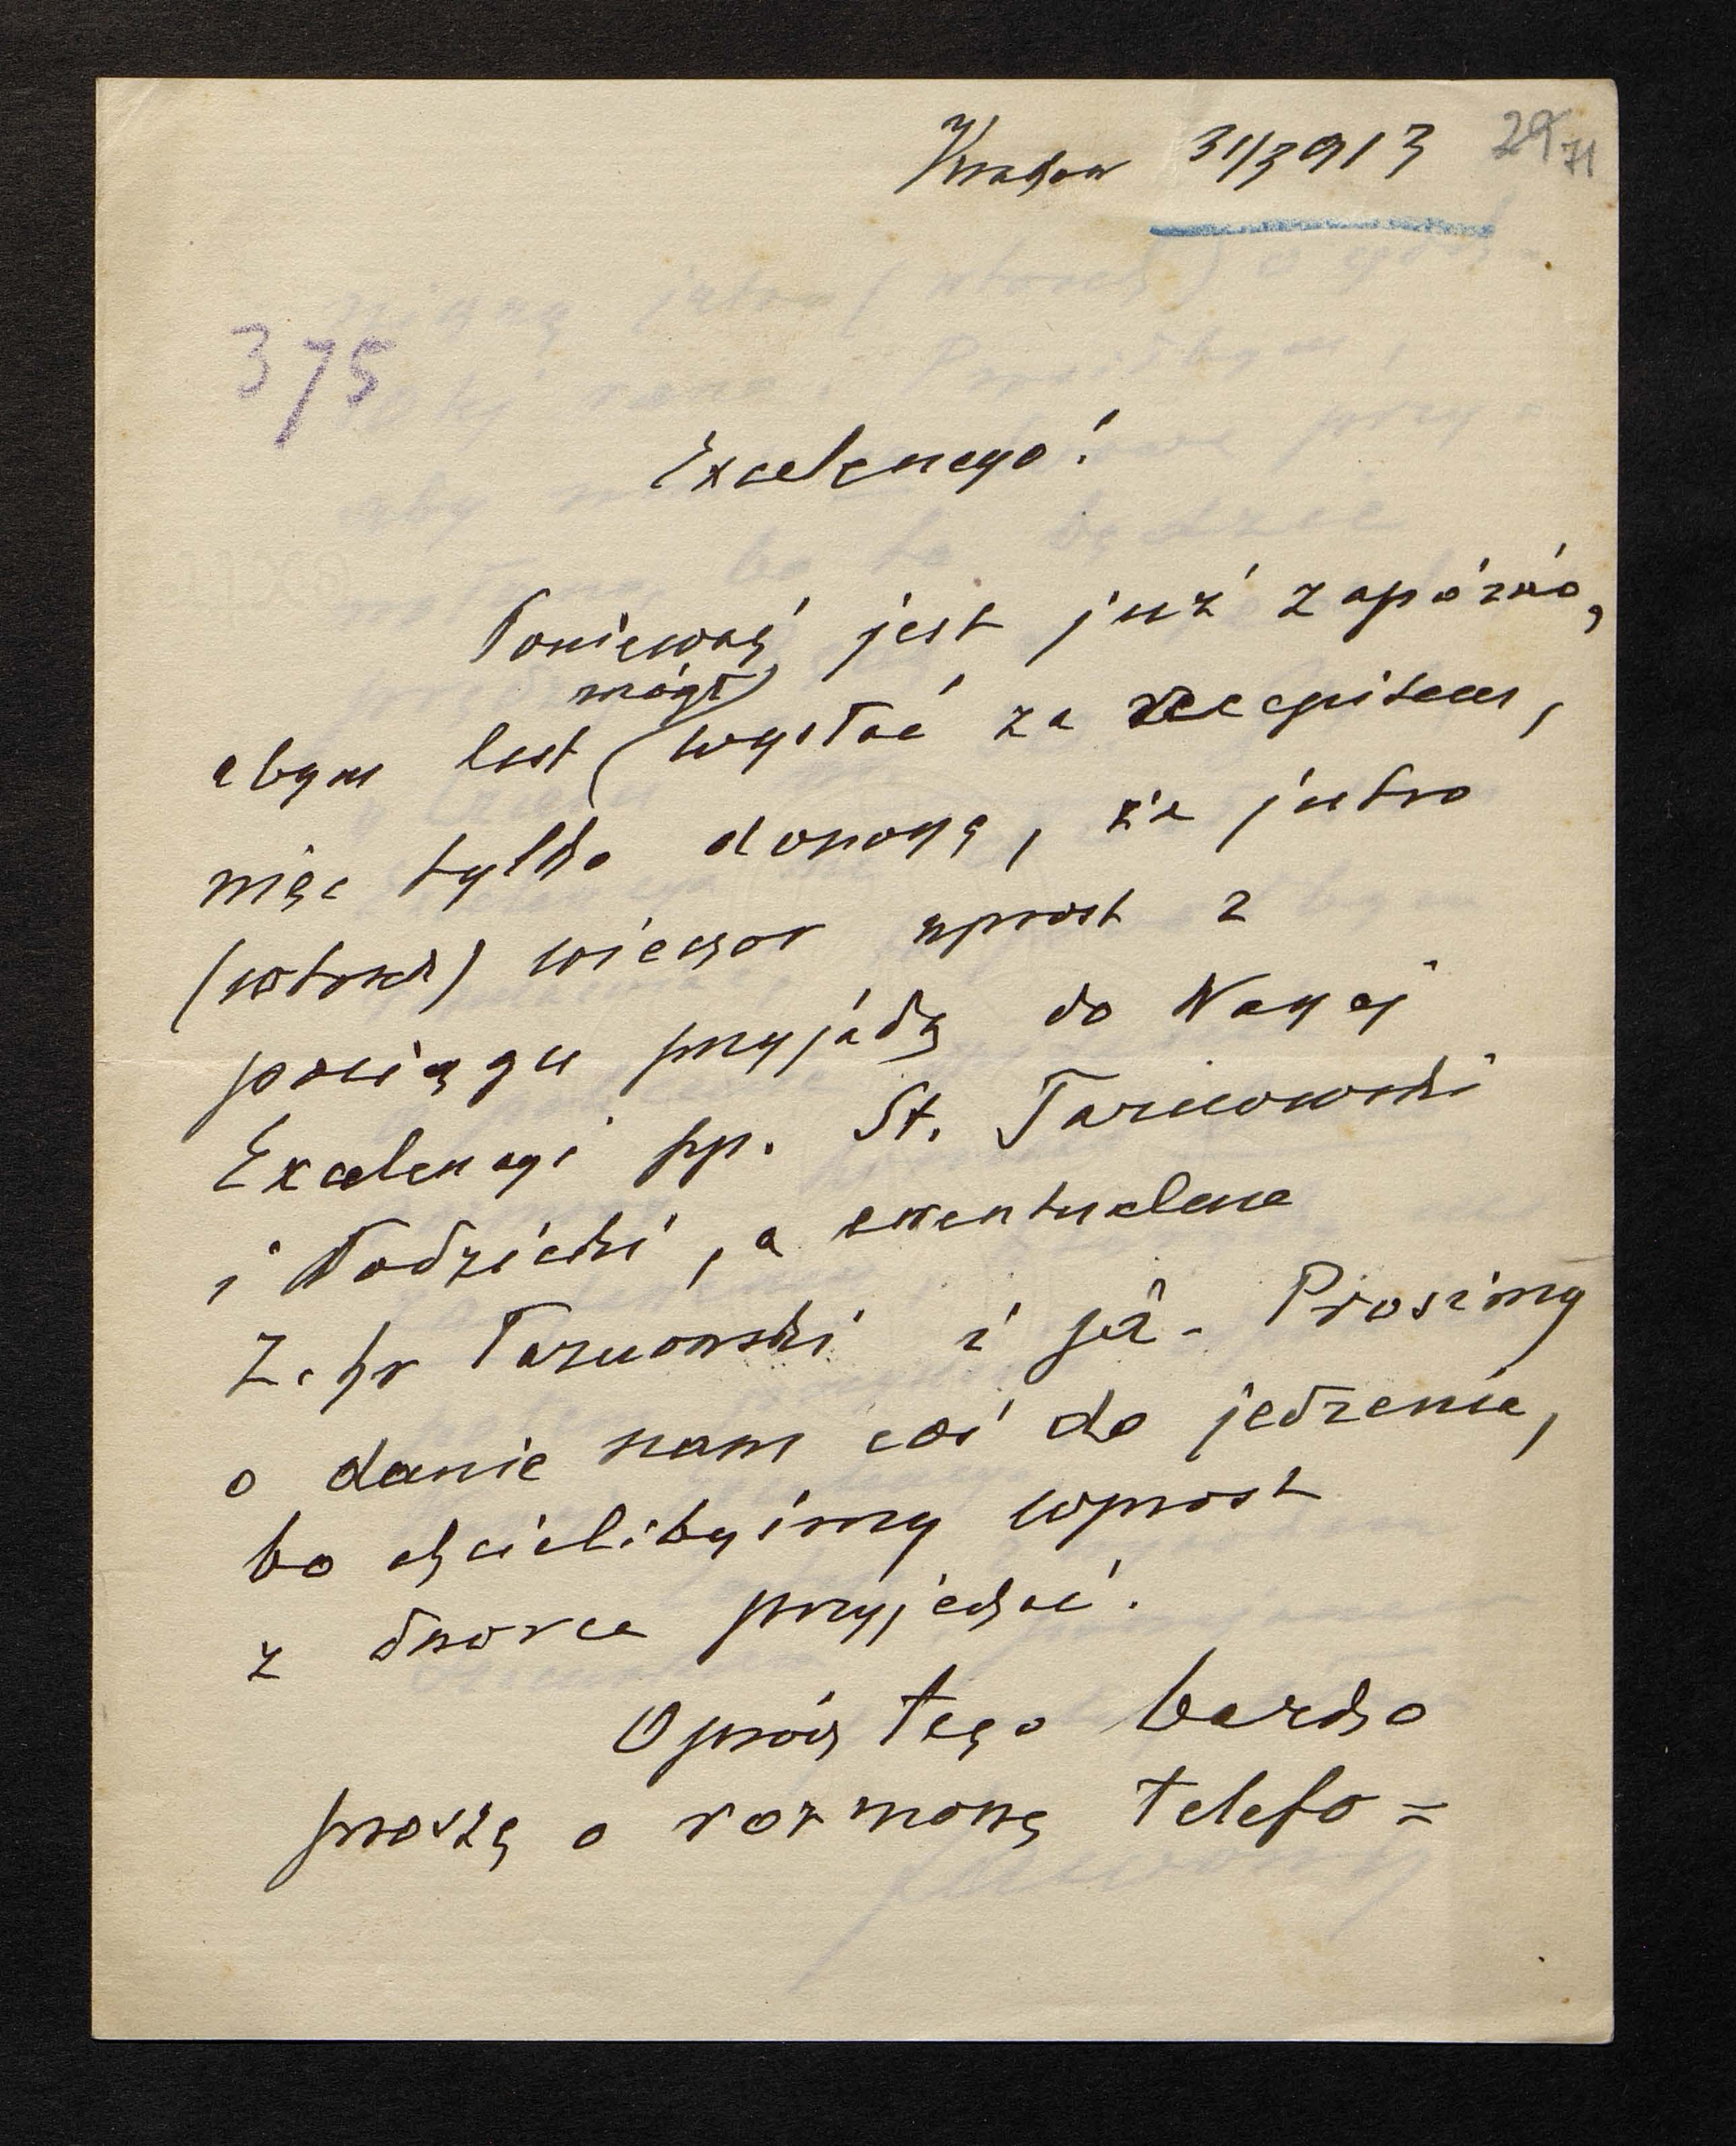 Kraków 31/3 913 29
71
375
Excelencyo!
Ponieważ jest już zapóźno,
abym list mógł wysłać za recepisem,
więc tylko donoszę, że jutro
(wtorek) wieczor wprost z
pociągu przyjadą do Waszej
Excelencyi pp. St. Tarnowski
i Wodzicki, a ewentualnie
Z. hr Tarnowski i ja. Prosimy
o danie nam coś do jedzenia,
bo chcielibyśmy wprost
z dworca przyjechać.
Oprócz tego bardzo
proszę o rozmowę telefo=